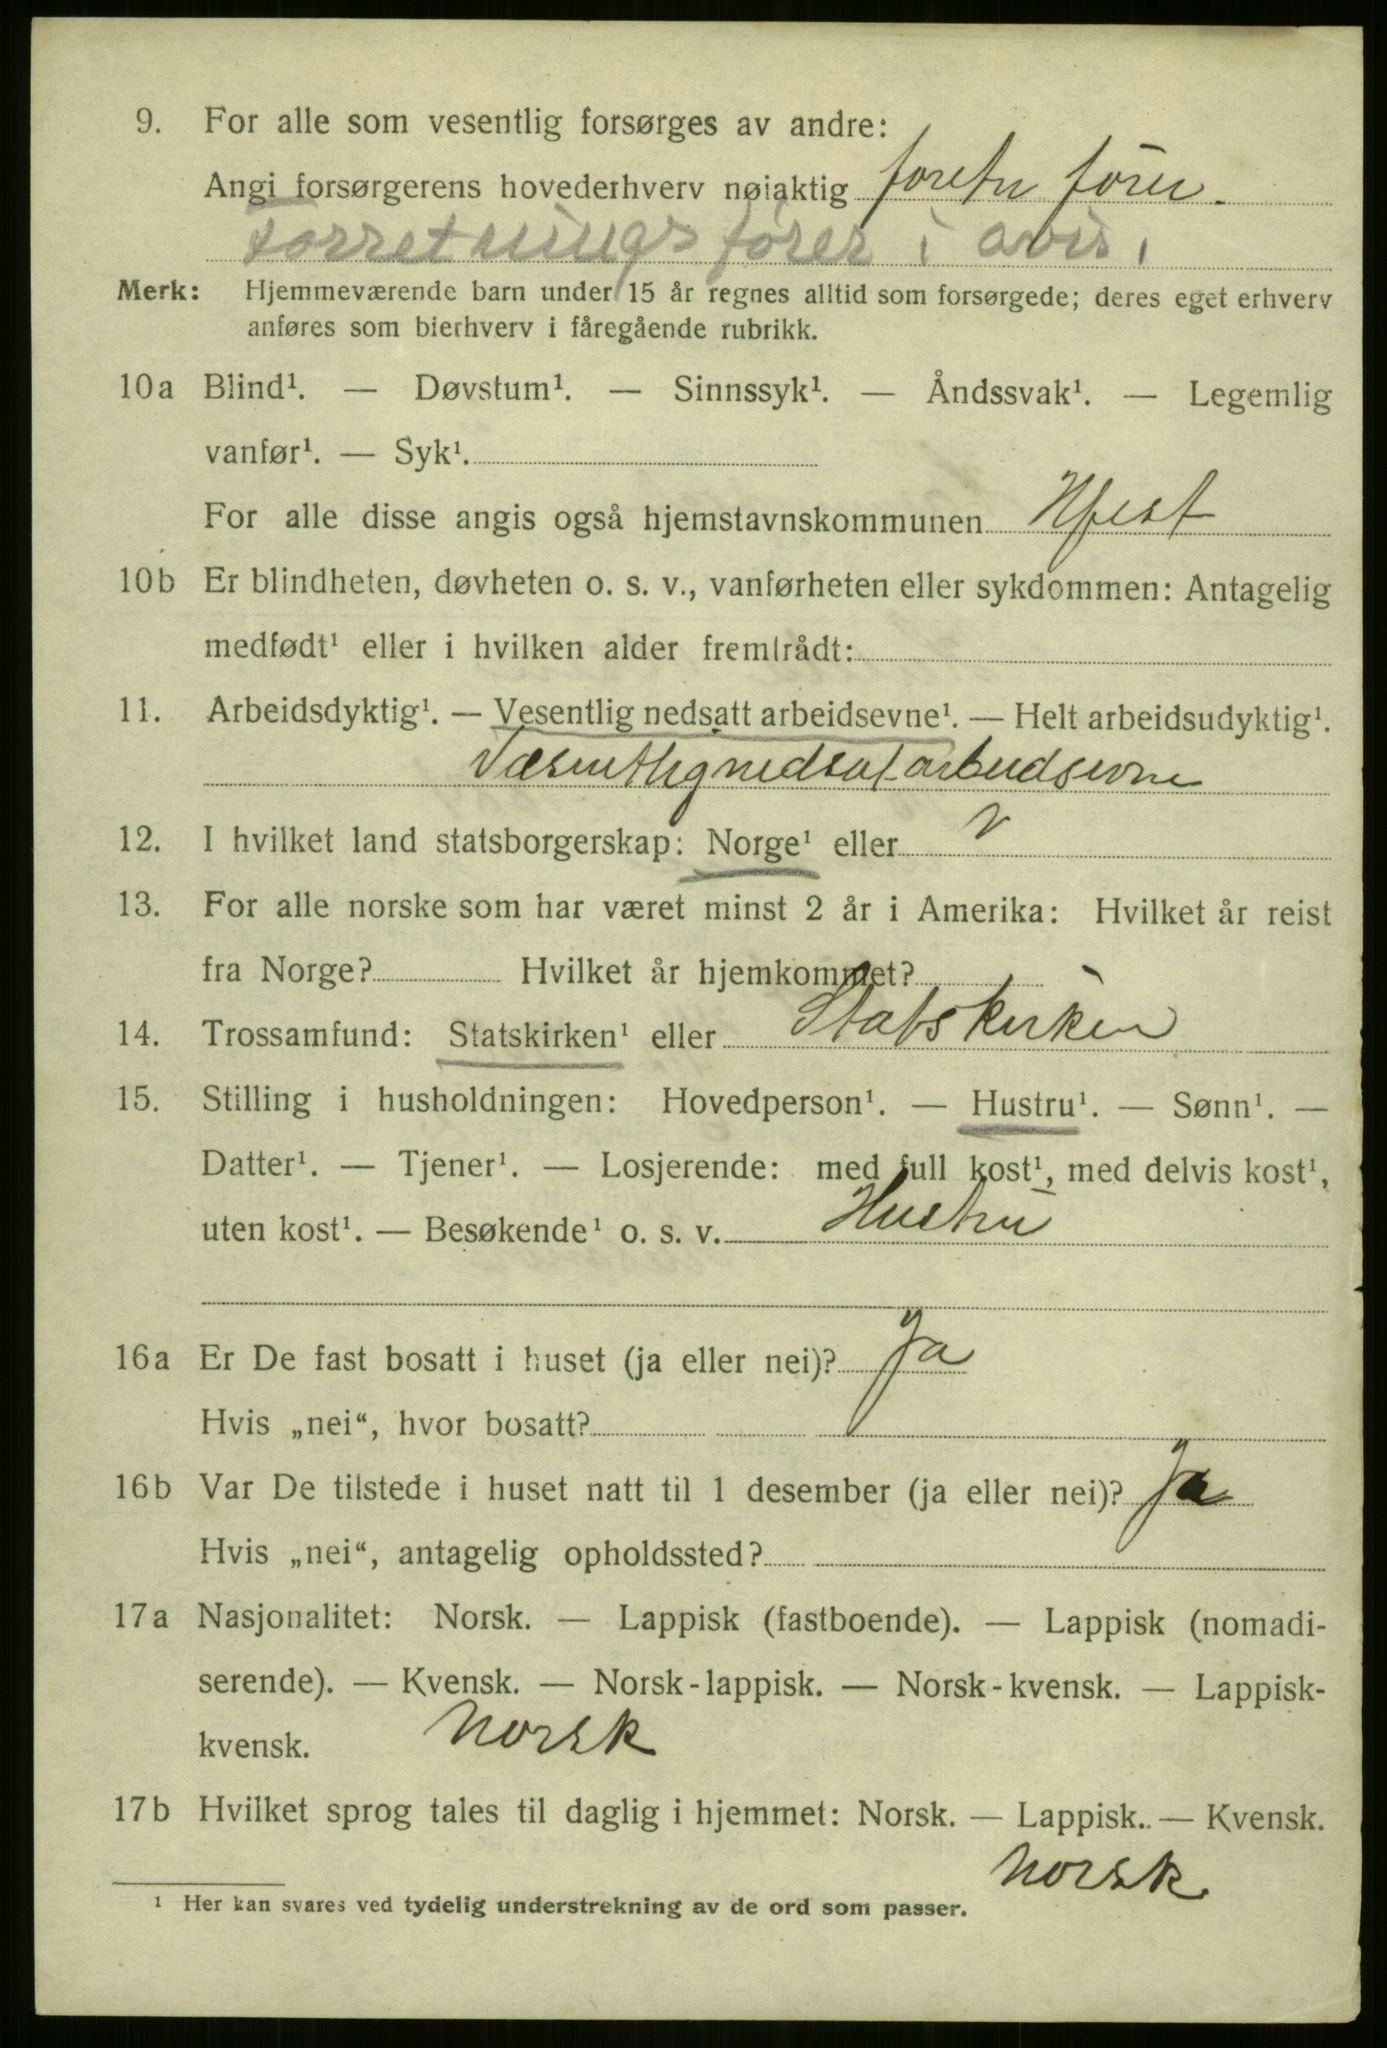 9. For alle som vesentlig forsørges av andre:
Angi forsørgerens hovederhverv nøiaktig foretn fører.
Forretningsfører i avis,
Merk: Hjemmeværende barn under 15 år regnes alltid som forsørgede; deres eget erhverv
anføres som bierhverv i fåregående rubrikk.
10a Blind¹. — Døvstum¹. — Sinnssyk¹. — Åndssvak¹. — Legemlig
vanfør¹. — Syk¹.
For alle disse angis også hjemstavnskommunen Hfest
10b Er blindheten, døvheten o. s. v., vanførheten eller sykdommen: Antagelig
medfødt¹ eller i hvilken alder fremtrådt:
11. Arbeidsdyktig¹. — Vesentlig nedsatt arbeidsevne¹. — Helt arbeidsudyktig¹.
Væsentlig nedsat arbeidsevne
12. I hvilket land statsborgerskap: Norge¹ eller v
13. For alle norske som har været minst 2 år i Amerika: Hvilket år reist
fra Norge? Hvilket år hjemkommet?
14. Trossamfund: Statskirken¹ eller Statskirken
15. Stilling i husholdningen: Hovedperson¹. — Hustru¹. — Sønn¹. —
Datter¹. — Tjener¹. — Losjerende: med full kost¹, med delvis kost¹,
uten kost¹. — Besøkende¹ o. s. v. Hustru
16a Er De fast bosatt i huset (ja eller nei)? Ja
Hvis „nei“, hvor bosatt?
16b Var De tilstede i huset natt til 1 desember (ja eller nei)? Ja
Hvis „nei“, antagelig opholdssted?
17a Nasjonalitet: Norsk. — Lappisk (fastboende). — Lappisk (nomadi-
serende). — Kvensk. — Norsk-lappisk. — Norsk-kvensk. — Lappisk-
kvensk. Norsk
17b Hvilket sprog tales til daglig i hjemmet: Norsk. — Lappisk. — Kvensk.
Norsk
¹ Her kan svares ved tydelig understrekning av de ord som passer.